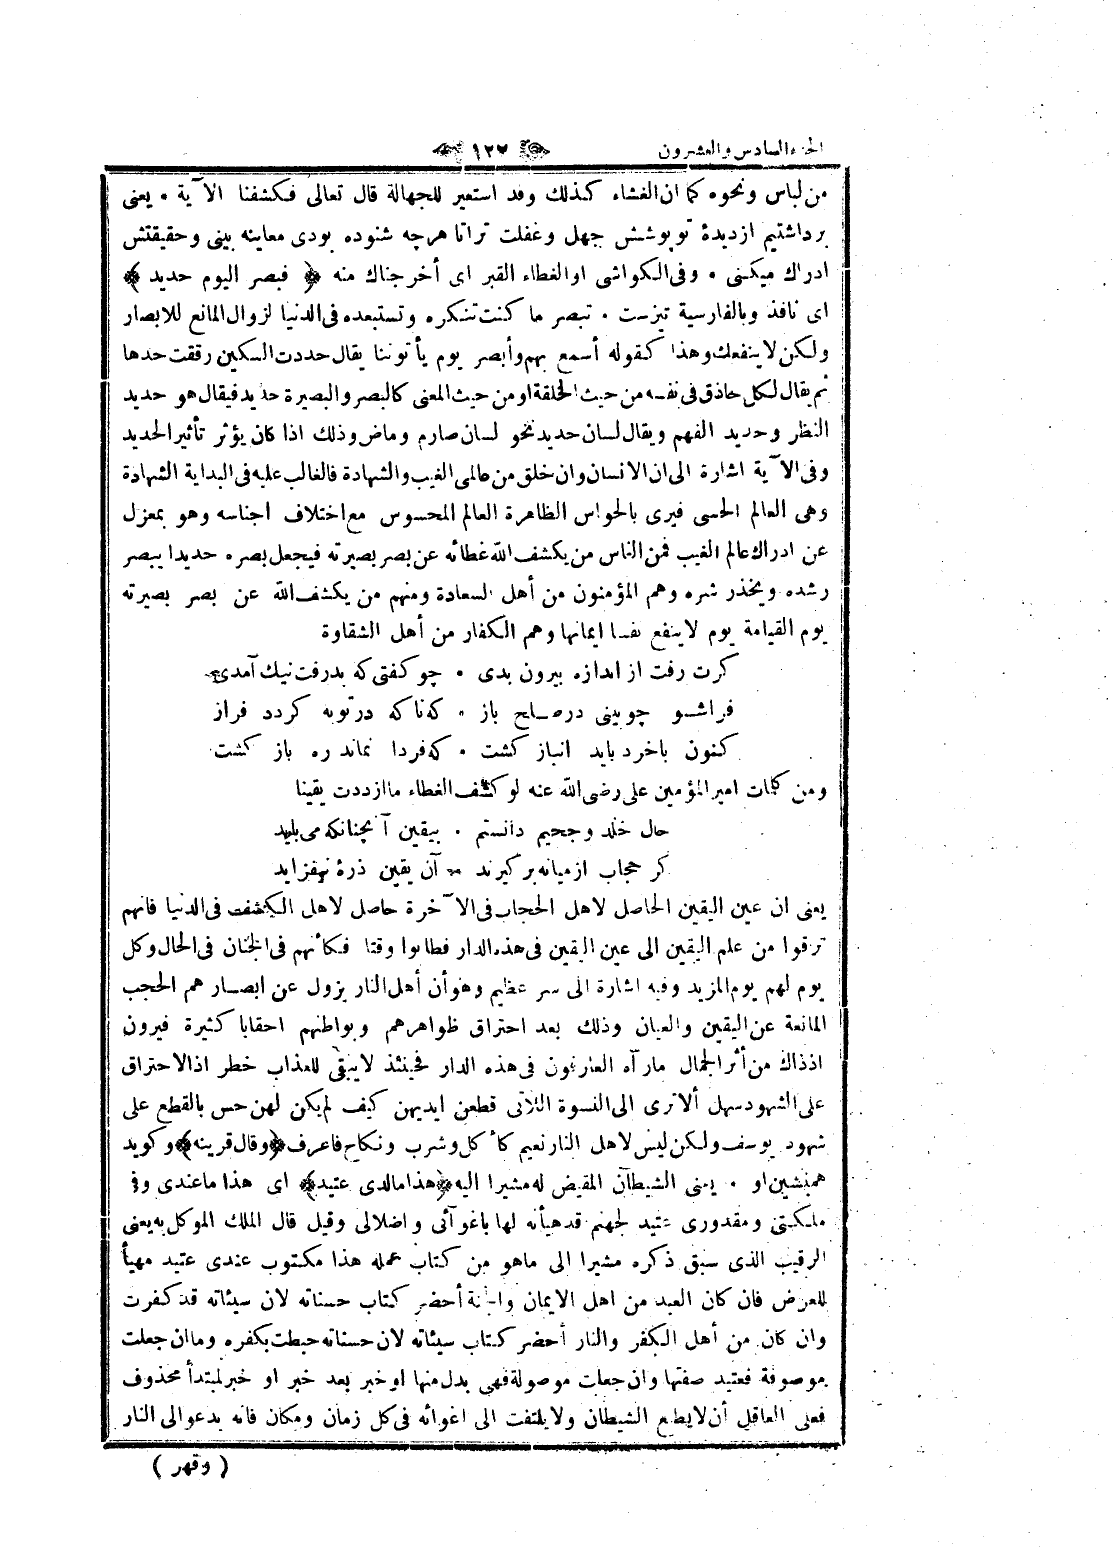 الجزء السادس والعشرون ١٢٧
من لباس ونحوه كما ان الغشاء كذلك وقد استعير للجهالة قال تعالى فكشفنا الآية • يعنى
برداشتيم ازديدۀ تو پوشش جهل وغفلت تراتا هرچه شنوده بودى معاينه بينى وحقيقتش
ادراك ميكنى • وفى الكواشى او الغطاء القبر اى أخرجناك منه ﴿ فبصر اليوم حديد ﴾
اى نافذ وبالفارسية تيزست • تبصر ما كنت تنكره وتستبعده فى الدنيا لزوال المانع للابصار
ولكن لا ينفعك وهذا كقوله أسمع بهم وأبصر يوم يأتوننا يقال حددت السكين رققت حدها
ثم يقال لكل حاذق فى نفسه من حيث الخلقة او من حيث المعنى كالبصر والبصيرة حديد فيقال هو حديد
النظر وحديد الفهم ويقال لسان حديد نحو لسان صارم وماض وذلك اذا كان يؤثر تأثير الحديد
وفى الآية اشارة الى ان الانسان وان خلق من عالمى الغيب والشهادة فالغالب عليه فى البداية الشهادة
وهى العالم الحسى فيرى بالحواس الظاهرة العالم المحسوس مع اختلاف اجناسه وهو بمعزل
عن ادراك عالم الغيب فمن الناس من يكشف الله غطائه عن بصر بصيرته فيجعل بصره حديدا يبصر
رشده ويحذر شره وهم المؤمنون من أهل السعادة ومنهم من يكشف الله عن بصر بصيرته
يوم القيامة يوم لا ينفع نفسا ايمانها وهم الكفار من أهل الشقاوة
كرت رفت از اندازه بيرون بدى • چو كفتى كه بدرفت نيك آمدى
فراشو چو بينى در صلح باز • كه ناكه در توبه كردد فراز
كنون باخرد بايد انباز كشت • كه فردا نماند ره باز كشت
ومن كلمات امير المؤمنين على رضى الله عنه لو كشف الغطاء ما ازددت يقينا
حال خلد وجحيم دانستم • بيقين آنچنانكه مى بايد
كر حجاب از ميانه بر كيرند • آن يقين ذرۀ نيفزايد
يعنى ان عين اليقين الحاصل لاهل الحجاب فى الآخرة حاصل لاهل الكشف فى الدنيا فانهم
ترقوا من علم اليقين الى عين اليقين فى هذه الدار فطابوا وقتا فكأنهم فى الجنان فى الحال وكل
يوم لهم يوم المزيد وفيه اشارة الى سر عظيم وهو أن أهل النار يزول عن ابصارهم الحجب
المانعة عن اليقين والعيان وذلك بعد احتراق ظواهرهم وبواطنهم احقابا كثيرة فيرون
اذذاك من أثر الجمال مارآه العارفون فى هذه الدار فحينئذ لا يبقى للعذاب خطر اذ الاحتراق
على الشهود سهل ألا ترى الى النسوة اللاتى قطعن ايديهن كيف لم يكن لهن حس بالقطع على
شهود يوسف ولكن ليس لاهل النار نعيم كأكل وشرب ونكاح فاعرف ﴿ وقال قرينه ﴾ وكويد
همنشين او • يعنى الشيطان المقيض له مشيرا اليه ﴿ هذا مالدى عتيد ﴾ اى هذا ما عندى وفى
ملكتى ومقدورى عتيد لجهنم قد هيأته لها باغوآئى واضلالى وقيل قال الملك الموكل به يعنى
الرقيب الذى سبق ذكره مشيرا الى ماهو من كتاب عمله هذا مكتوب عندى عتيد مهيأ
للعرض فان كان العبد من اهل الايمان والجنة أحضر كتاب حسناته لان سيئاته قد كفرت
وان كان من أهل الكفر والنار أحضر كتاب سيئاته لان حسناته حبطت بكفره وما ان جعلت
موصوفة فعتيد صفتها وان جعلت موصولة فهى بدل منها او خبر بعد خبر او خبر لمبتدأ محذوف
فعلى العاقل أن لا يطيع الشيطان ولا يلتفت الى اغوائه فى كل زمان ومكان فانه يدعو الى النار
( وقهر )